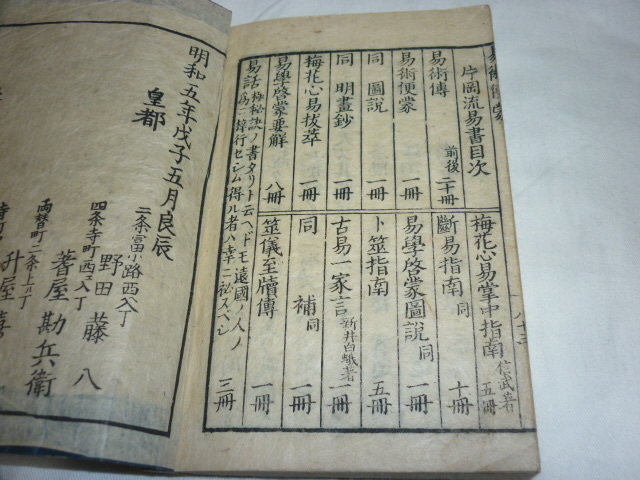 易術便蒙
片岡流易書目次
易術傳 前後 二十冊
易術便蒙 一冊
同 圖說 一冊
同 明畫鈔 一冊
梅花心易拔萃 一冊
易學啓蒙要解 八冊
易話 極秘訣ノ書タリト云ヘドモ遠國ノ人ノ
三冊
梅花心易掌中指南 五冊
斷易指南 同 十冊
易學啓蒙圖說 同 一冊
卜筮指南 五冊
古易一家言 新井白蛾著 一冊
同 補 同 一冊
筮儀至牘傳 一冊
明和五年戊子五月良辰
皇都
二条富小路西入丁
野田藤八
四条寺町西エ入丁
蓍屋勘兵衛
両替町二条上ル丁